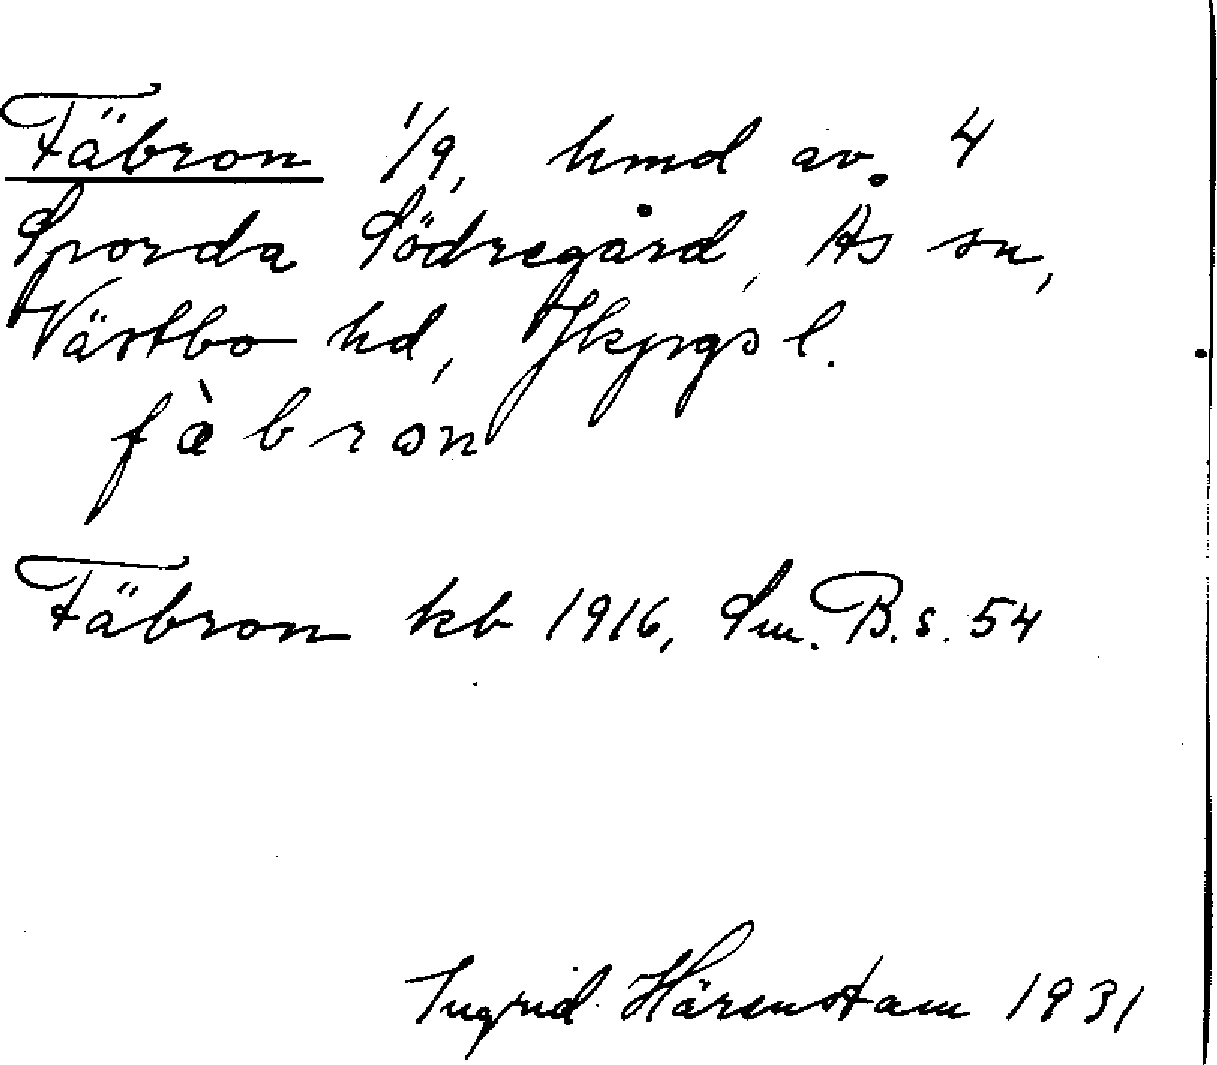 Fäbron 1/9, hmd av 4
Sporda Södregård, Ås sn,
Västbo hd, Jkpgs l.
fæ̀bron
Fäbron kb 1916, Sm. B. s. 54
Ingrid Härenstam 1931